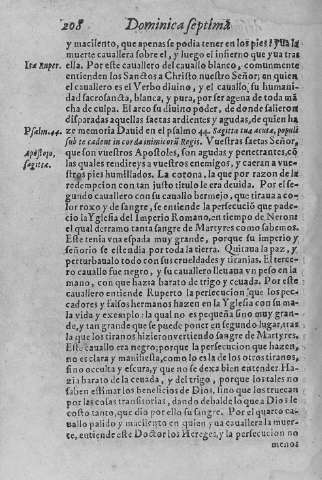 208 Dominica septima
y macilento, que apenas se podia tener en los pies: yua la
muerte cauallera sobre el, y luego el infierno que yua tras
Ita Ruper. ella. Por este cauallero del cauallo blanco, comunmente
entienden los Sanctos a Christo nuestro Señor; en quien
el cauallero es el Verbo diuino, y el cauallo, su humani-
dad sacrosancta, blanca, y pura, por ser agena de toda má
cha de culpa. El arco su diuino poder, de donde salieron
disparadas aquellas saetas ardientes y agudas, de quien ha
Psalm. 44. ze memoria Dauid en el psalmo 44. Sagittæ tuæ acutæ, populi
sub te cadent in corda inimicorū Regis. Vuestras saetas Señor,
Apostoli, que son vuestros Apostoles, son agudas y penetrantes, cō
sagittæ. las quales rendireys a vuestros enemigos, y caeran a vues-
tros pies humillados. La corona, la que por razon de la
redempcion con tan justo titulo le era deuida. Por el se-
gundo cauallero con su cauallo bermejo, que tiraua a co-
lor roxo y de sangre, se entiende la persecució que pade-
cio la Yglesia del Imperio Romano, en tiempo de Neron:
el qual derramo tanta sangre de Martyres como sabemos.
Este tenia vna espada muy grande, porque su imperio y
señorio se estendia por toda la tierra. Quitaua la paz, y
perturbaualo todo con sus crueldades y tiranias. El terce-
ro cauallo fue negro, y su cauallero lleuaua vn peso en la
mano, con que hazia barato de trigo y ceuada. Por este
cauallero entiende Ruperto la persecucion que los pec-
cadores y falsos hermanos hazen en la Yglesia con su ma-
la vida y exemplo: la qual no es pequeña sino muy gran-
de, y tan grande que se puede poner en segundo lugar, tras
la que los tiranos hizieron vertiendo sangre de Martyres.
Este cauallo era negro; porque la persecucion que hazen,
no es clara y manifiesta, como lo es la de los otros tiranos,
sino occulta y escura, y que no se dexa bien entender. Ha-
zia barato de la ceuada, y del trigo, porque los tales no
saben estimar los beneficios de Dios, sino que los truecan
por las cosas transitorias, dando de balde lo que a Dios le
costo tanto, que dio por ello su sangre. Por el quarto ca-
uallo palido y macilento en quien yua cauallera la muer-
te, entiende este Doctor los Hereges, y la persecucion no
menos